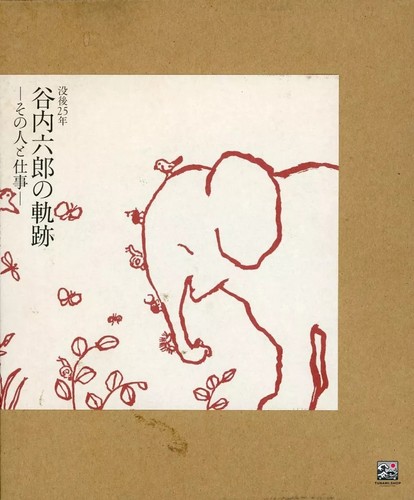 没後25年
谷内六郎の軌跡
―その人と仕事―